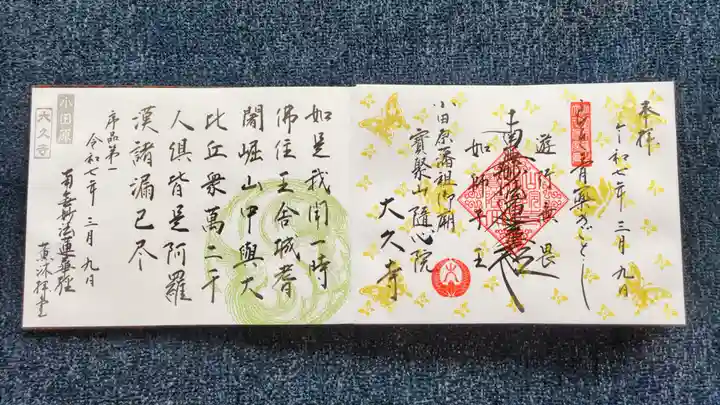 奉拝
令和七年三月九日
南無妙法蓮華経
遊行無畏
如師子王
小田原藩祖御廟
寳聚山隨心院
大久寺
大
如是我聞一時
佛住王舎城耆
闍崛山中與大
比丘衆萬二千
人倶皆是阿羅
漢諸漏已尽
序品第一
令和七年三月九日
南無妙法蓮華経
小田原
大久寺